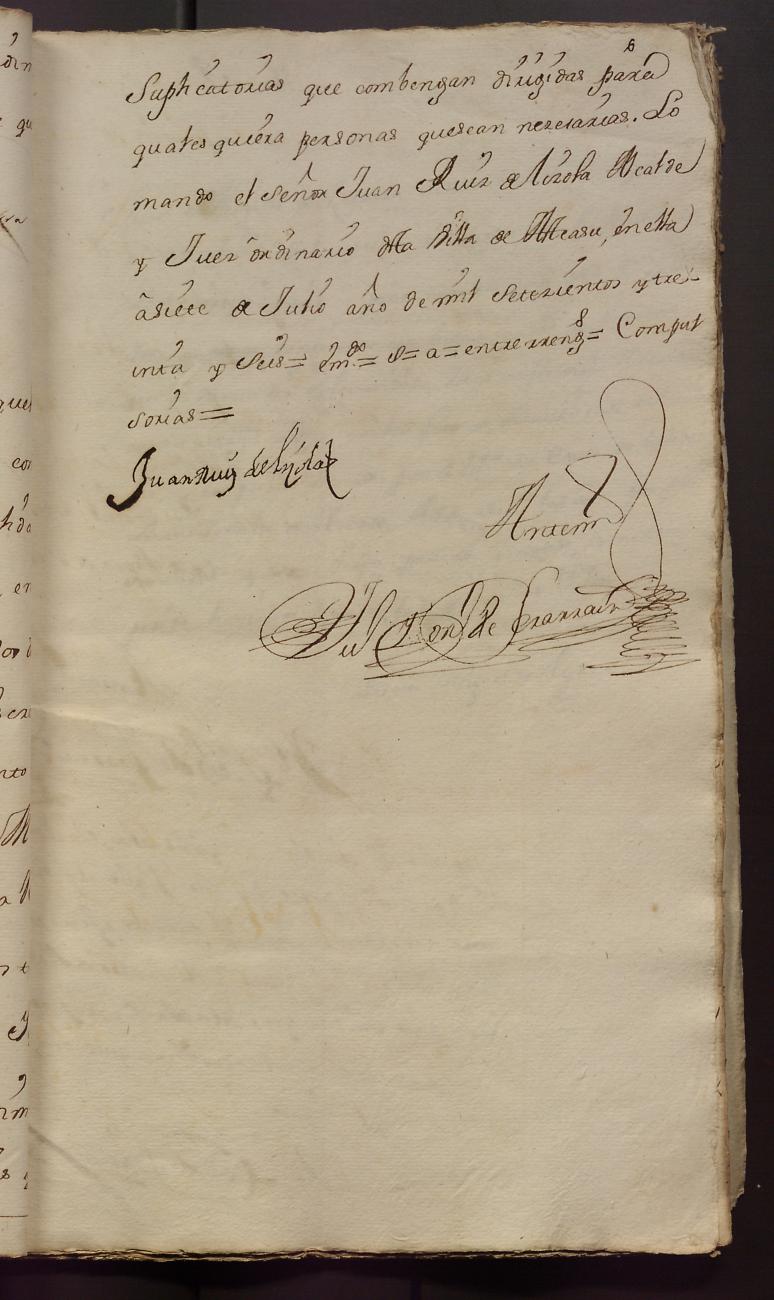 6
Suplicatorias que combengan dirigidas para
quales quiera personas que sean nezesarias. Lo
mando el Señor Juan Ruiz de Lizola Alcalde
y Juez ordinario dela Villa de Alsasu, en ella
a siete de Julio año de mil Setezientos y tre-
inta y Seis= em.do= o= a= entrerreng.s= Compul
sorias=
Juan Ruiz de Lizola
Ante mi
de